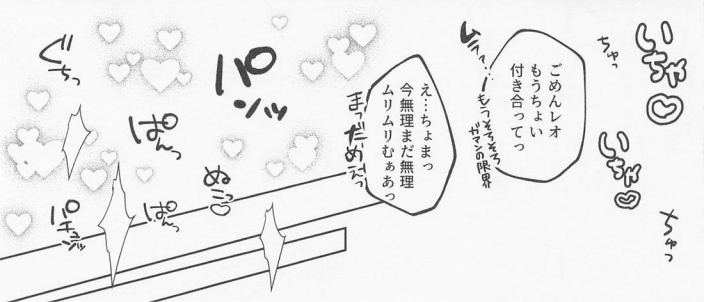 いちゃ♡
いちゃ♡
ちゅっ
ちゅっ
ごめんレオ
もうちょい
付き合ってっ
ムラァ…
もうそろそろ
ガマンの限界
え…ちょまっ
今無理まだ無理
ムリムリむぁあっ
まっだめぇっ
パンッ
ぬこっ♡
ぱんっ
ぱんっ
ぐちっ
パチュンッ